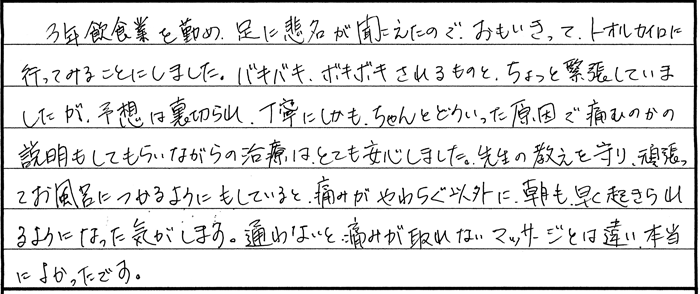 3年飲食業を勤め、足に悲名が聞こえたので、おもいきって、トオルカイロに
行ってみることにしました。バキバキ、ボキボキされるものと、ちょっと緊張していま
したが、予想は裏切られ、丁寧にしかも、ちゃんとどういった原因で痛むのかの
説明もしてもらいながらの治療は、とても安心しました。先生の教えを守り、頑張っ
てお風呂につかるようにもしていると、痛みがやわらぐ以外に、朝も、早く起きられ
るようになった気がします。通わないと、痛みが取れないマッサージとは違い、本当
によかったです。